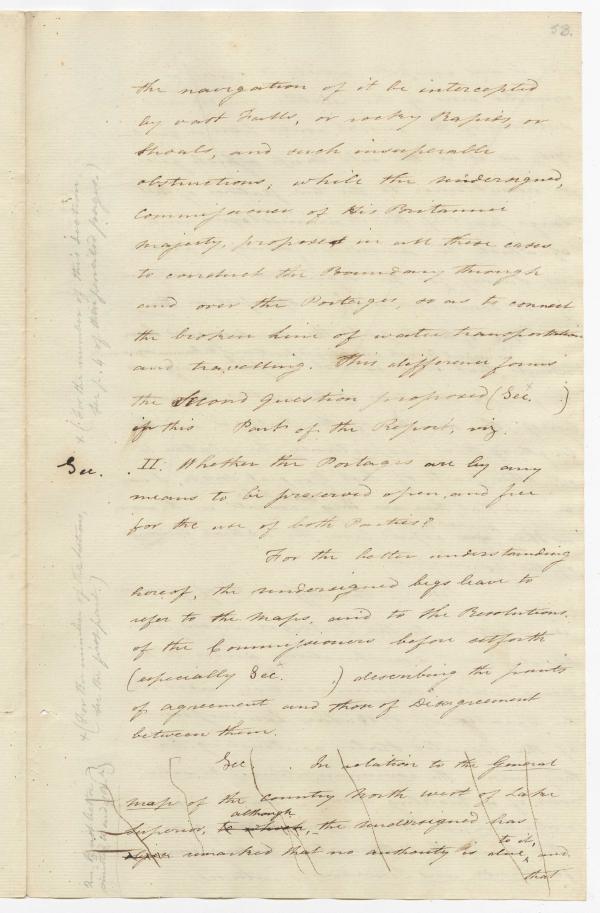 58.
the navigation of it be intercepted
by vast Falls, or rocky Rapids, or
Shoals, and such insuperable
obstructions; while the undersigned,
Commissioner of His Britannic
Majesty, proposed in all these cases
to conduct the Boundary through
and over the Portages, so as to connect
the broken line of water transportation
and travelling. This difference forms
the Second Question proposed (Sec. )
in this Part of the Report, viz
Sec. II. Whether the Portages are by any
means to be preserved open, and free
for the use of both Parties?
For the better understanding
hereof, the undersigned begs leave to
refer to the Maps, and to the Resolutions
of the Commissioners before setforth
(especially Sec. .) describing the points
of agreement and those of Disagreement
between them.
Sec . In relation to the General
map of the Country North west of Lake
Superior, to which, although the undersigned has
remarked that no authority is due to it, and
that
x (For the number of this Section
see p. 4 of
x (For the number of the Section,
see the